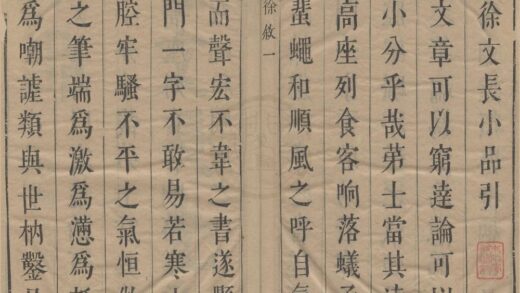 徐文長小品引
文章可以窮達論可
小分乎哉苐士當其
高座列食客响落蟻
蜚蠅和順風之呼自
徐敘一
而聲宏不韋之書遂
門一字不敢易若寒
腔牢騷不平之氣恒
之筆端爲激爲懣爲
爲嘲謔類與世枘鑿